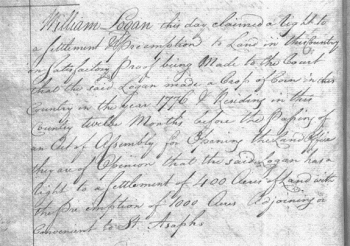 William Logan this day claimed a right to
a settlement & Preemption to Land in this Country
on Satisfactory Proof being Made to the Court
that the said Logan made a Crop of Corn in this
Country in the year 1776 & Residing in this
Country twelve Months before the Passing of
an Act of Assembly for Opening the Land Office
they are of Opinion that the said Logan has a
Right to a settlement of 400 Acres of Land with
the Preemption of 1000 Acres adjoining
Convenient to St. Asaphs